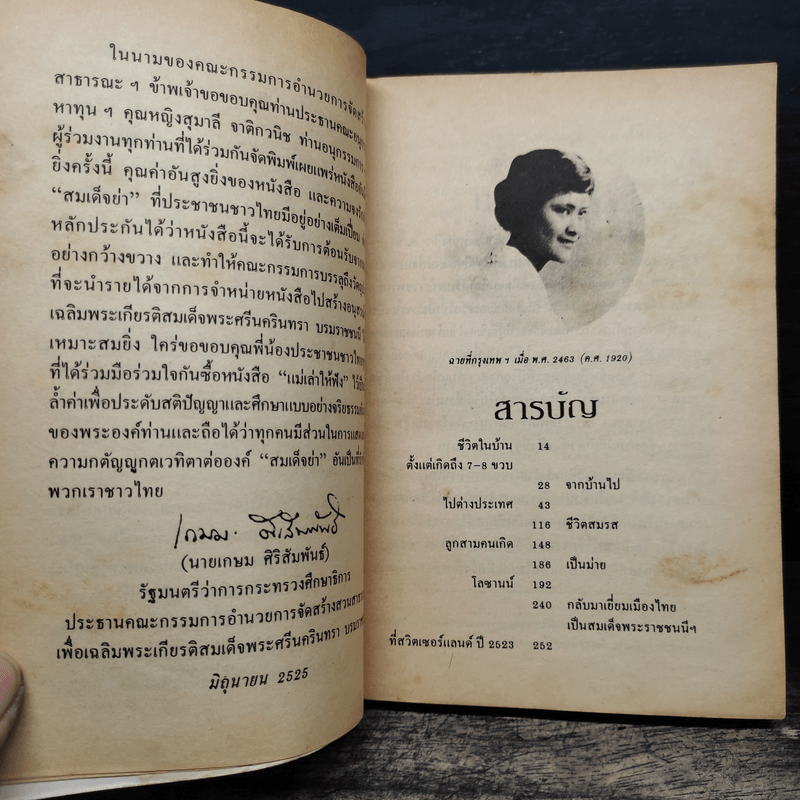 ในนามของคณะกรรมการอำนวยการจัดสร้
สาธารณะ ฯ ข้าพเจ้าขอขอบคุณท่านประธานคณะอนุกร
หาทุน ฯ คุณหญิงสุมาลี จาติกวนิช ท่านอนุกรรมการ
ผู้ร่วมงานทุกท่านที่ได้ร่วมกันจัดพิมพ์เผยแพร่หนังสือ
ยิ่งครั้งนี้ คุณค่าอันสูงยิ่งของหนังสือ และความจง
“สมเด็จย่า” ที่ประชาชนชาวไทยมีอยู่อย่างเต็มเปี่ยม
หลักประกันได้ว่าหนังสือนี้จะได้รับการต้อนรับจาก
อย่างกว้างขวาง และทำให้คณะกรรมการบรรลุถึงวัตถุ
ที่จะนำรายได้จากการจำหน่ายหนังสือไปสร้างอนุ
เฉลิมพระเกียรติสมเด็จพระศรีนครินทรา บรมราชชนนี
เหมาะสมยิ่ง ใคร่ขอขอบคุณพี่น้องประชาชนชาวไทย
ที่ได้ร่วมมือร่วมใจกันซื้อหนังสือ “แม่เล่าให้ฟัง” ไว้
ล้ำค่าเพื่อประดับสติปัญญาและศึกษาแบบอย่างจริยธรรม
ของพระองค์ท่านและถือได้ว่าทุกคนมีส่วนในการแสดง
ความกตัญญูกตเวทิตาต่อองค์ “สมเด็จย่า” อันเป็นที่
พวกเราชาวไทย
(นายเกษม ศิริสัมพันธ์)
รัฐมนตรีว่าการกระทรวงศึกษาธิการ
ประธานคณะกรรมการอำนวยการจัดสร้างสวนสาธาร
เพื่อเฉลิมพระเกียรติสมเด็จพระศรีนครินทรา บรมราช
มิถุนายน 2525
ฉายที่กรุงเทพ ฯ เมื่อ พ.ศ. 2463 (ค.ศ. 1920)
สารบัญ
ชีวิตในบ้าน 14
ตั้งแต่เกิดถึง 7-8 ขวบ
28 จากบ้านไป
ไปต่างประเทศ 43
116 ชีวิตสมรส
ลูกสามคนเกิด 148
186 เป็นม่าย
โลซานน์ 192
240 กลับมาเยี่ยมเมืองไทย
เป็นสมเด็จพระราชชนนีฯ
ที่สวิตเซอร์แลนด์ ปี 2523 252